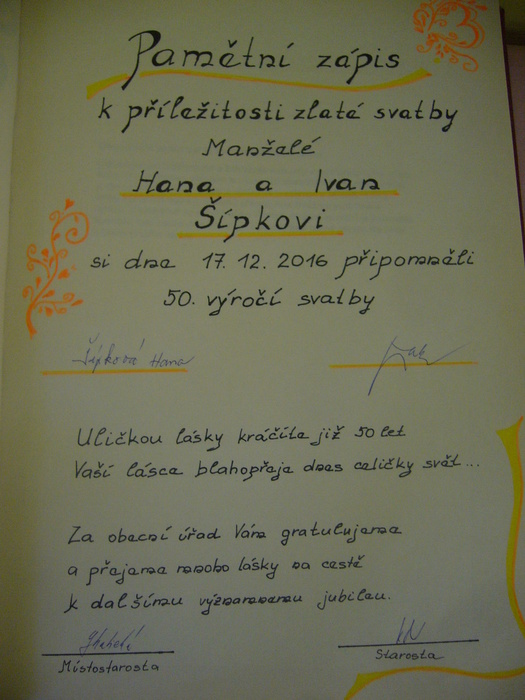 Pamětní zápis
k příležitosti zlaté svatby
Manželé
Hana a Ivan
Šípkovi
si dne 17. 12. 2016 připomněli
50. výročí svatby
Šípková Hana
Uličkou lásky kráčíte již 50 let
Vaší lásce blahopřeje dnes celičký svět...
Za obecní úřad Vám gratulujeme
a přejeme mnoho lásky na cestě
k dalšímu významnému jubileu.
Místostarosta
Starosta